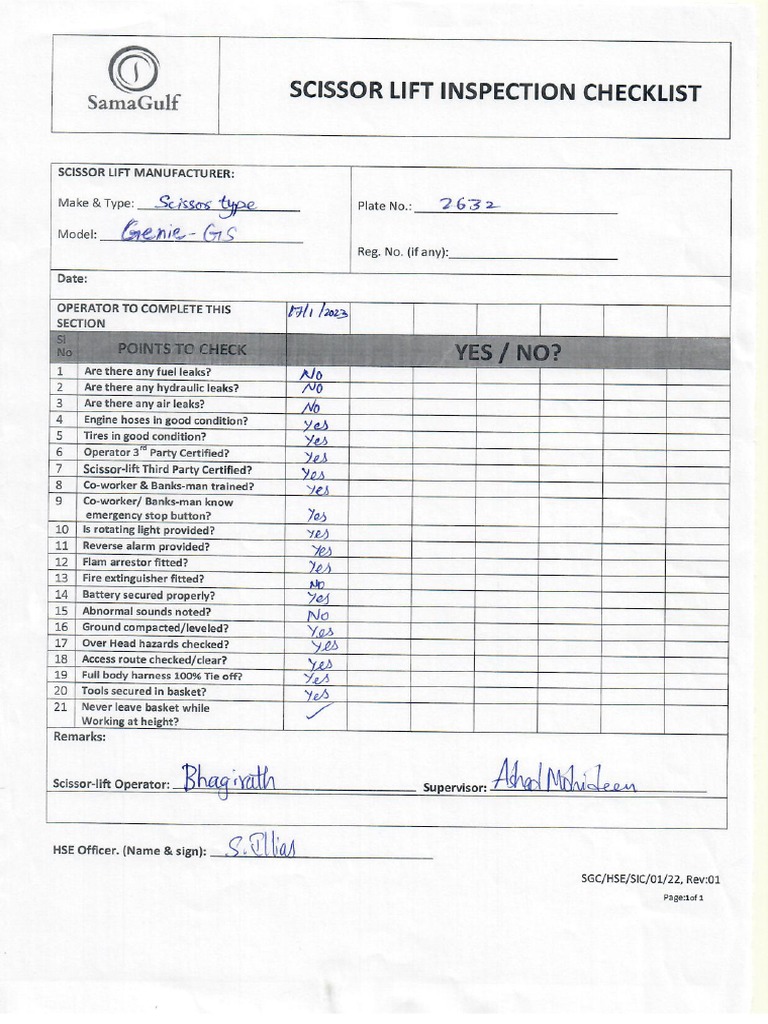 SamaGulf
SCISSOR LIFT INSPECTION CHECKLIST
SCISSOR LIFT MANUFACTURER:
Make & Type: Scissor type
Plate No.: 2632
Model: Genie-GS
Reg. No. (if any):
Date:
OPERATOR TO COMPLETE THIS SECTION 17/1/2023
Sl No POINTS TO CHECK YES / NO?
1 Are there any fuel leaks? No
2 Are there any hydraulic leaks? No
3 Are there any air leaks? No
4 Engine hoses in good condition? Yes
5 Tires in good condition? Yes
6 Operator 3rd Party Certified? Yes
7 Scissor-lift Third Party Certified? Yes
8 Co-worker & Banks-man trained? Yes
9 Co-worker/ Banks-man know
emergency stop button? Yes
10 Is rotating light provided? Yes
11 Reverse alarm provided? Yes
12 Flam arrestor fitted? Yes
13 Fire extinguisher fitted? No
14 Battery secured properly? Yes
15 Abnormal sounds noted? No
16 Ground compacted/leveled? Yes
17 Over Head hazards checked? Yes
18 Access route checked/clear? Yes
19 Full body harness 100% Tie off? Yes
20 Tools secured in basket? Yes
21 Never leave basket while
Working at height? ✓
Remarks:
Scissor-lift Operator: Bhagirath Supervisor: Mohideen
HSE Officer. (Name & sign): S. Illias
SGC/HSE/SIC/01/22, Rev:01
Page:1of 1